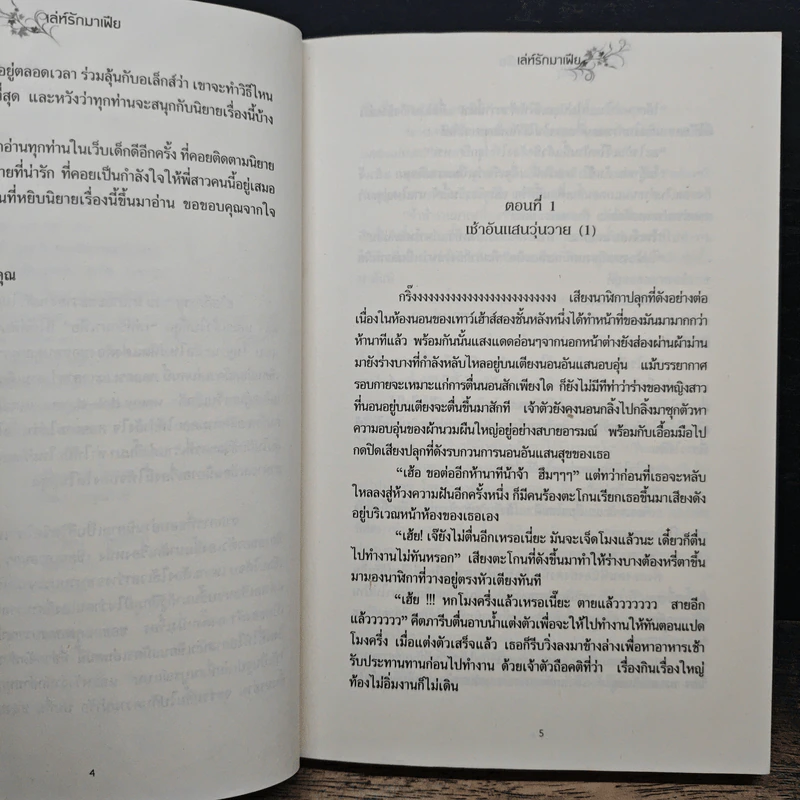 เล่ห์รักมาเฟีย
อยู่ตลอดเวลา ร่วมลุ้นกับอเล็กส์ว่า เขาจะทำวิธีไหน
ที่สุด และหวังว่าทุกท่านจะสนุกกับนิยายเรื่องนี้บ้าง
อ่านทุกท่านในเว็บเด็กดีอีกครั้ง ที่คอยติดตามนิยาย
ที่น่ารัก ที่คอยเป็นกำลังใจให้พี่สาวคนนี้อยู่เสมอ
ที่หยิบนิยายเรื่องนี้ขึ้นมาอ่าน ขอขอบคุณจากใจ
คุณ
4
เล่ห์รักมาเฟีย
ตอนที่ 1
เช้าอันแสนวุ่นวาย (1)
กริ๊งงงงงงงงงงงงงงงงงงงงงงงงงง เสียงนาฬิกาปลุกที่ดังอย่างต่อ
เนื่องในห้องนอนของเทาว์เฮ้าส์สองชั้นหลังหนึ่งได้ทำหน้าที่ของมันมามากกว่า
ห้านาทีแล้ว พร้อมกันนั้นแสงแดดอ่อนๆจากนอกหน้าต่างยังส่องผ่านผ้าม่าน
มายังร่างบางที่กำลังหลับไหลอยู่บนเตียงนอนอันแสนอบอุ่น แม้บรรยากาศ
รอบกายจะเหมาะแก่การตื่นนอนสักเพียงใด ก็ยังไม่มีทีท่าว่าร่างของหญิงสาว
ที่นอนอยู่บนเตียงจะตื่นขึ้นมาสักที เจ้าตัวยังคงนอนกลิ้งไปกลิ้งมาซุกตัวหา
ความอบอุ่นของผ้านวมผืนใหญ่อยู่อย่างสบายอารมณ์ พร้อมกับเอื้อมมือไป
กดปิดเสียงปลุกที่ดังรบกวนการนอนอันแสนสุขของเธอ
“เฮ้อ ขอต่ออีกห้านาทีน้าจ้า ฮึมๆๆๆ” แต่ทว่าก่อนที่เธอจะหลับ
ไหลลงสู่ห้วงความฝันอีกครั้งหนึ่ง ก็มีคนร้องตะโกนเรียกเธอขึ้นมาเสียงดัง
อยู่บริเวณหน้าห้องของเธอเอง
“เฮ้ย! เจ๊ยังไม่ตื่นอีกเหรอเนี่ยะ มันจะเจ็ดโมงแล้วนะ เดี๋ยวก็ตื่น
ไปทำงานไม่ทันหรอก” เสียงตะโกนที่ดังขึ้นมาทำให้ร่างบางต้องหรี่ตาขึ้น
มามองนาฬิกาที่วางอยู่ตรงหัวเตียงทันที
“เฮ้ย !!! หกโมงครึ่งแล้วเหรอเนี๊ยะ ตายแล้วววววววว สายอีก
แล้วววววว” คีตภารีบตื่นอาบน้ำแต่งตัวเพื่อจะให้ไปทำงานให้ทันตอนแปด
โมงครึ่ง เมื่อแต่งตัวเสร็จแล้ว เธอก็รีบวิ่งลงมาข้างล่างเพื่อหาอาหารเช้า
รับประทานทานก่อนไปทำงาน ด้วยเจ้าตัวถือคติที่ว่า เรื่องกินเรื่องใหญ่
ท้องไม่อิ่มงานก็ไม่เดิน
5